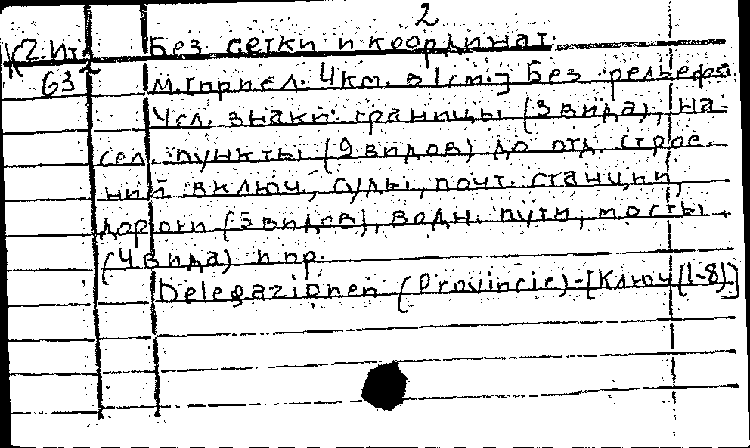 2
К2-Ит Без сетки и координат.
63 М. [прибл. 4км. в 1см.] Без рельефа
Усл. знаки: границы (3 вида), на-
сел. пункты (9 видов) до отд. строе-
ний включ., суды, почт. станции,
дороги (5 видов), водн. пути, мосты
(4 вида) и пр.
Delegazionen (Provincie)-[Ключ (1-8)]